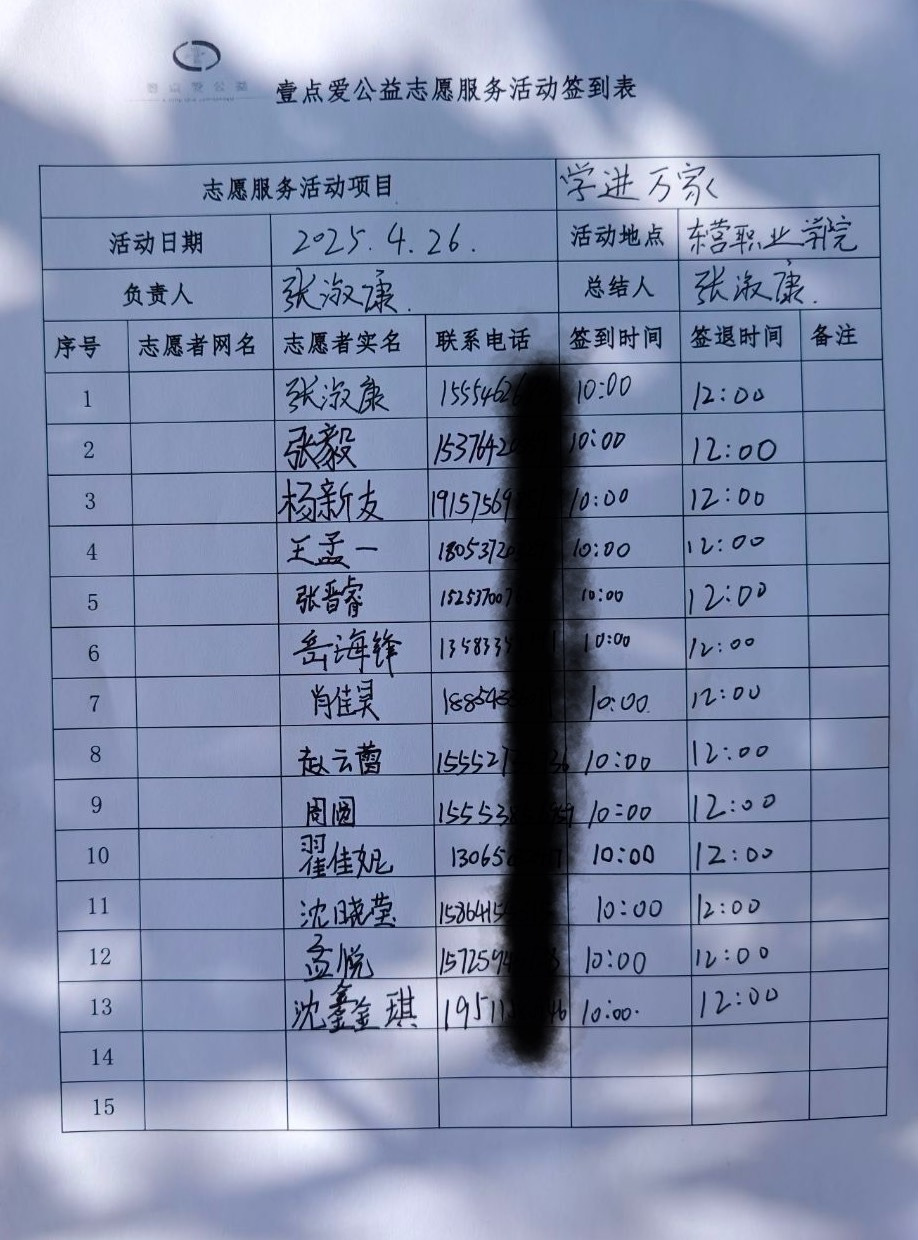 壹点爱公益
壹点爱公益志愿服务活动签到表
志愿服务活动项目 学进万家
活动日期 2025.4.26. 活动地点 东营职业学院
负责人 张淑康. 总结人 张淑康.
序号 志愿者网名 志愿者实名 联系电话 签到时间 签退时间 备注
1 张淑康 1555462 10:00 12:00
2 张毅 1537642 10:00 12:00
3 杨新友 19157569 10:00 12:00
4 王孟一 1805372 10:00 12:00
5 张晋睿 15253700 10:00 12:00
6 岳海锋 135833 10:00 12:00
7 肖佳昊 188543 10:00 12:00
8 赵云蕾 155527 36 10:00 12:00
9 周圆 155553 59 10:00 12:00
10 翟佳妮 13065 10:00 12:00
11 沈晓莹 15864154 10:00 12:00
12 孟悦 1572594 10:00 12:00
13 沈鑫金琪 1951 46 10:00. 12:00
14
15